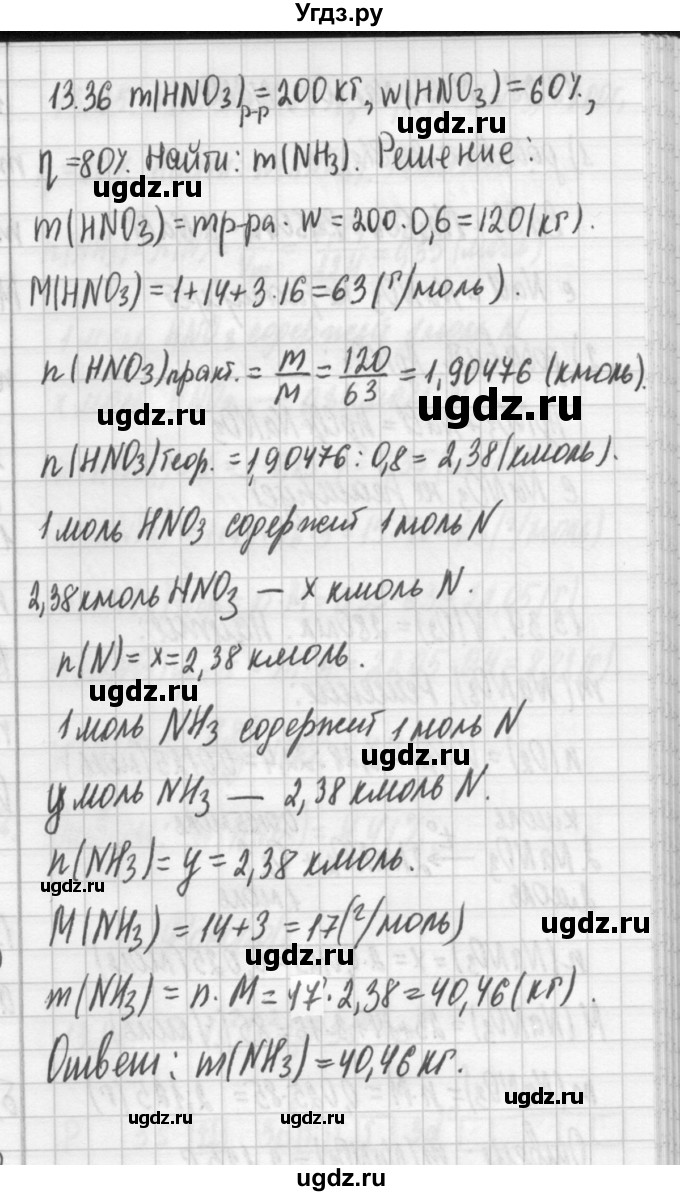 Угдз.ру
13.36 m(HNO3)р-р = 200 кг, w(HNO3) = 60%,
ugdz.ru
η = 80%. Найти: m(NH3). Решение:
ugdz.ru
m(HNO3) = mр-ра · w = 200 · 0,6 = 120 (кг).
M(HNO3) = 1 + 14 + 3 · 16 = 63 (г/моль).
n(HNO3)практ. = m/M = 120/63 = 1,90476 (кмоль).
ugdz.ru
n(HNO3)теор. = 1,90476 : 0,8 = 2,38 (кмоль).
1 моль HNO3 содержит 1 моль N
ugdz.ru
2,38 кмоль HNO3 — x кмоль N.
n(N) = x = 2,38 кмоль.
ugdz.ru
1 моль NH3 содержит 1 моль N
ugdz.ru
y моль NH3 — 2,38 кмоль N.
n(NH3) = y = 2,38 кмоль.
ugdz.ru
M(NH3) = 14 + 3 = 17 (г/моль)
ugdz.ru
ugdz.ru
m(NH3) = n · M = 17 · 2,38 = 40,46 (кг).
Ответ: m(NH3) = 40,46 кг.
ugdz.ru
ugdz.ru
ugdz.ru
ugdz.ru